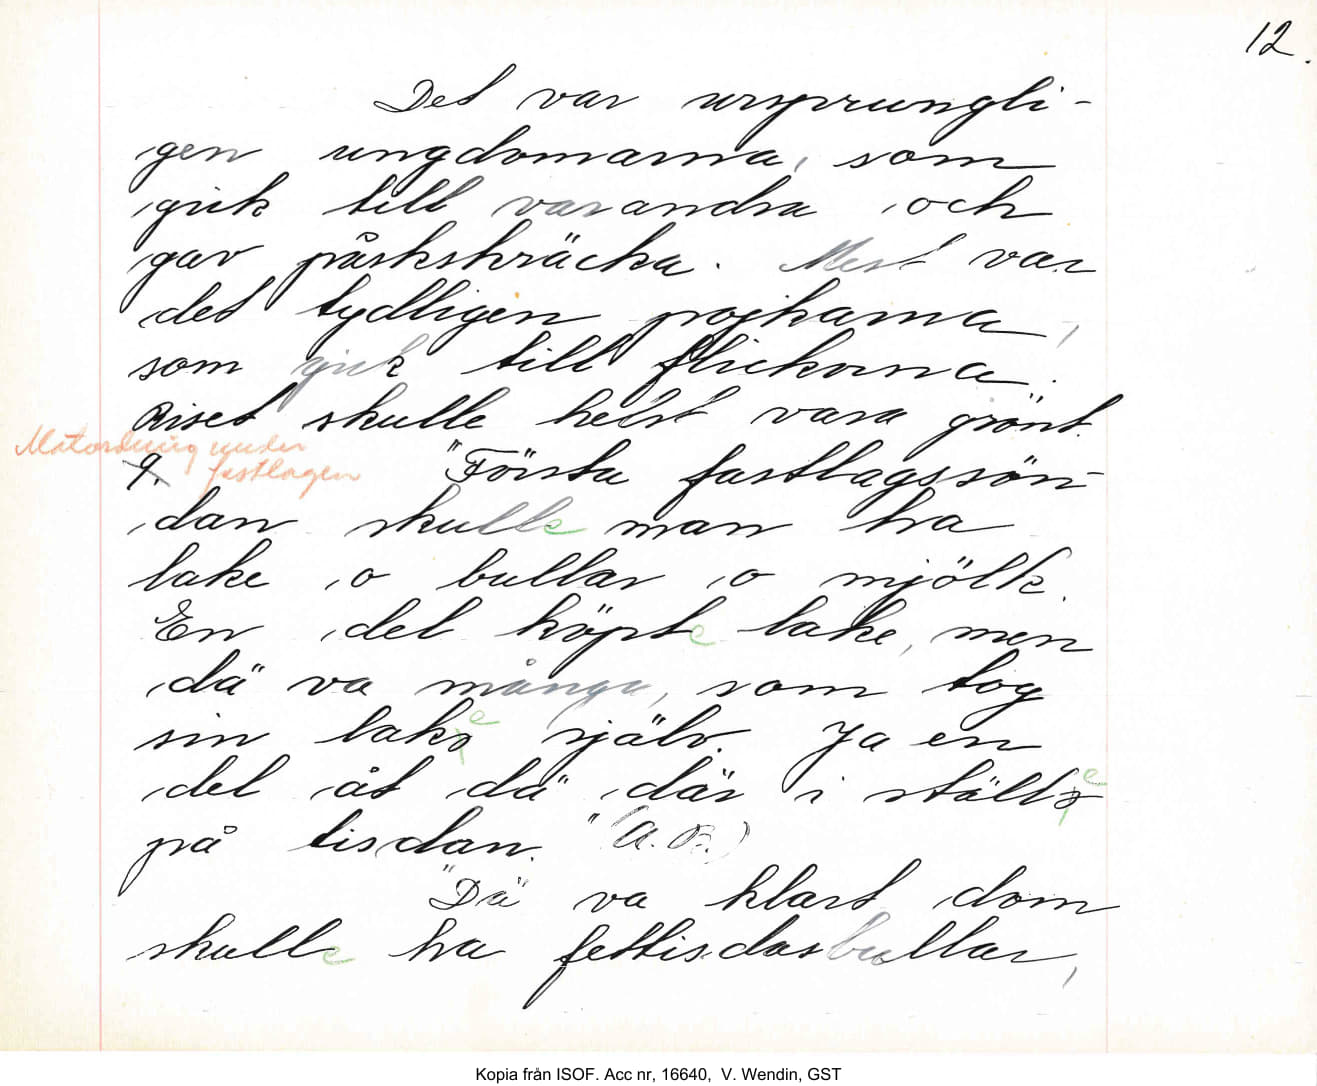 12.
Det var ursprungli-
gen ungdomarna, som
gick till varandra och
gav påskskräcka. Mest var
det tydligen pojkarna,
som gick till flickorna.
Riset skulle helst vara grönt.
Matordning under
fastlagen
9. "Första fastlagssön-
dan skulle man ha
lake o bullar o mjölk.
En del köpte lake, men
dä va många, som tog
sin lake själv. Ja en
del åt dä där i ställe
på tisdan." (A. B.)
"Dä" va klart dom
skulle ha fettisdasbullar,
Kopia från ISOF. Acc nr, 16640, V. Wendin, GST